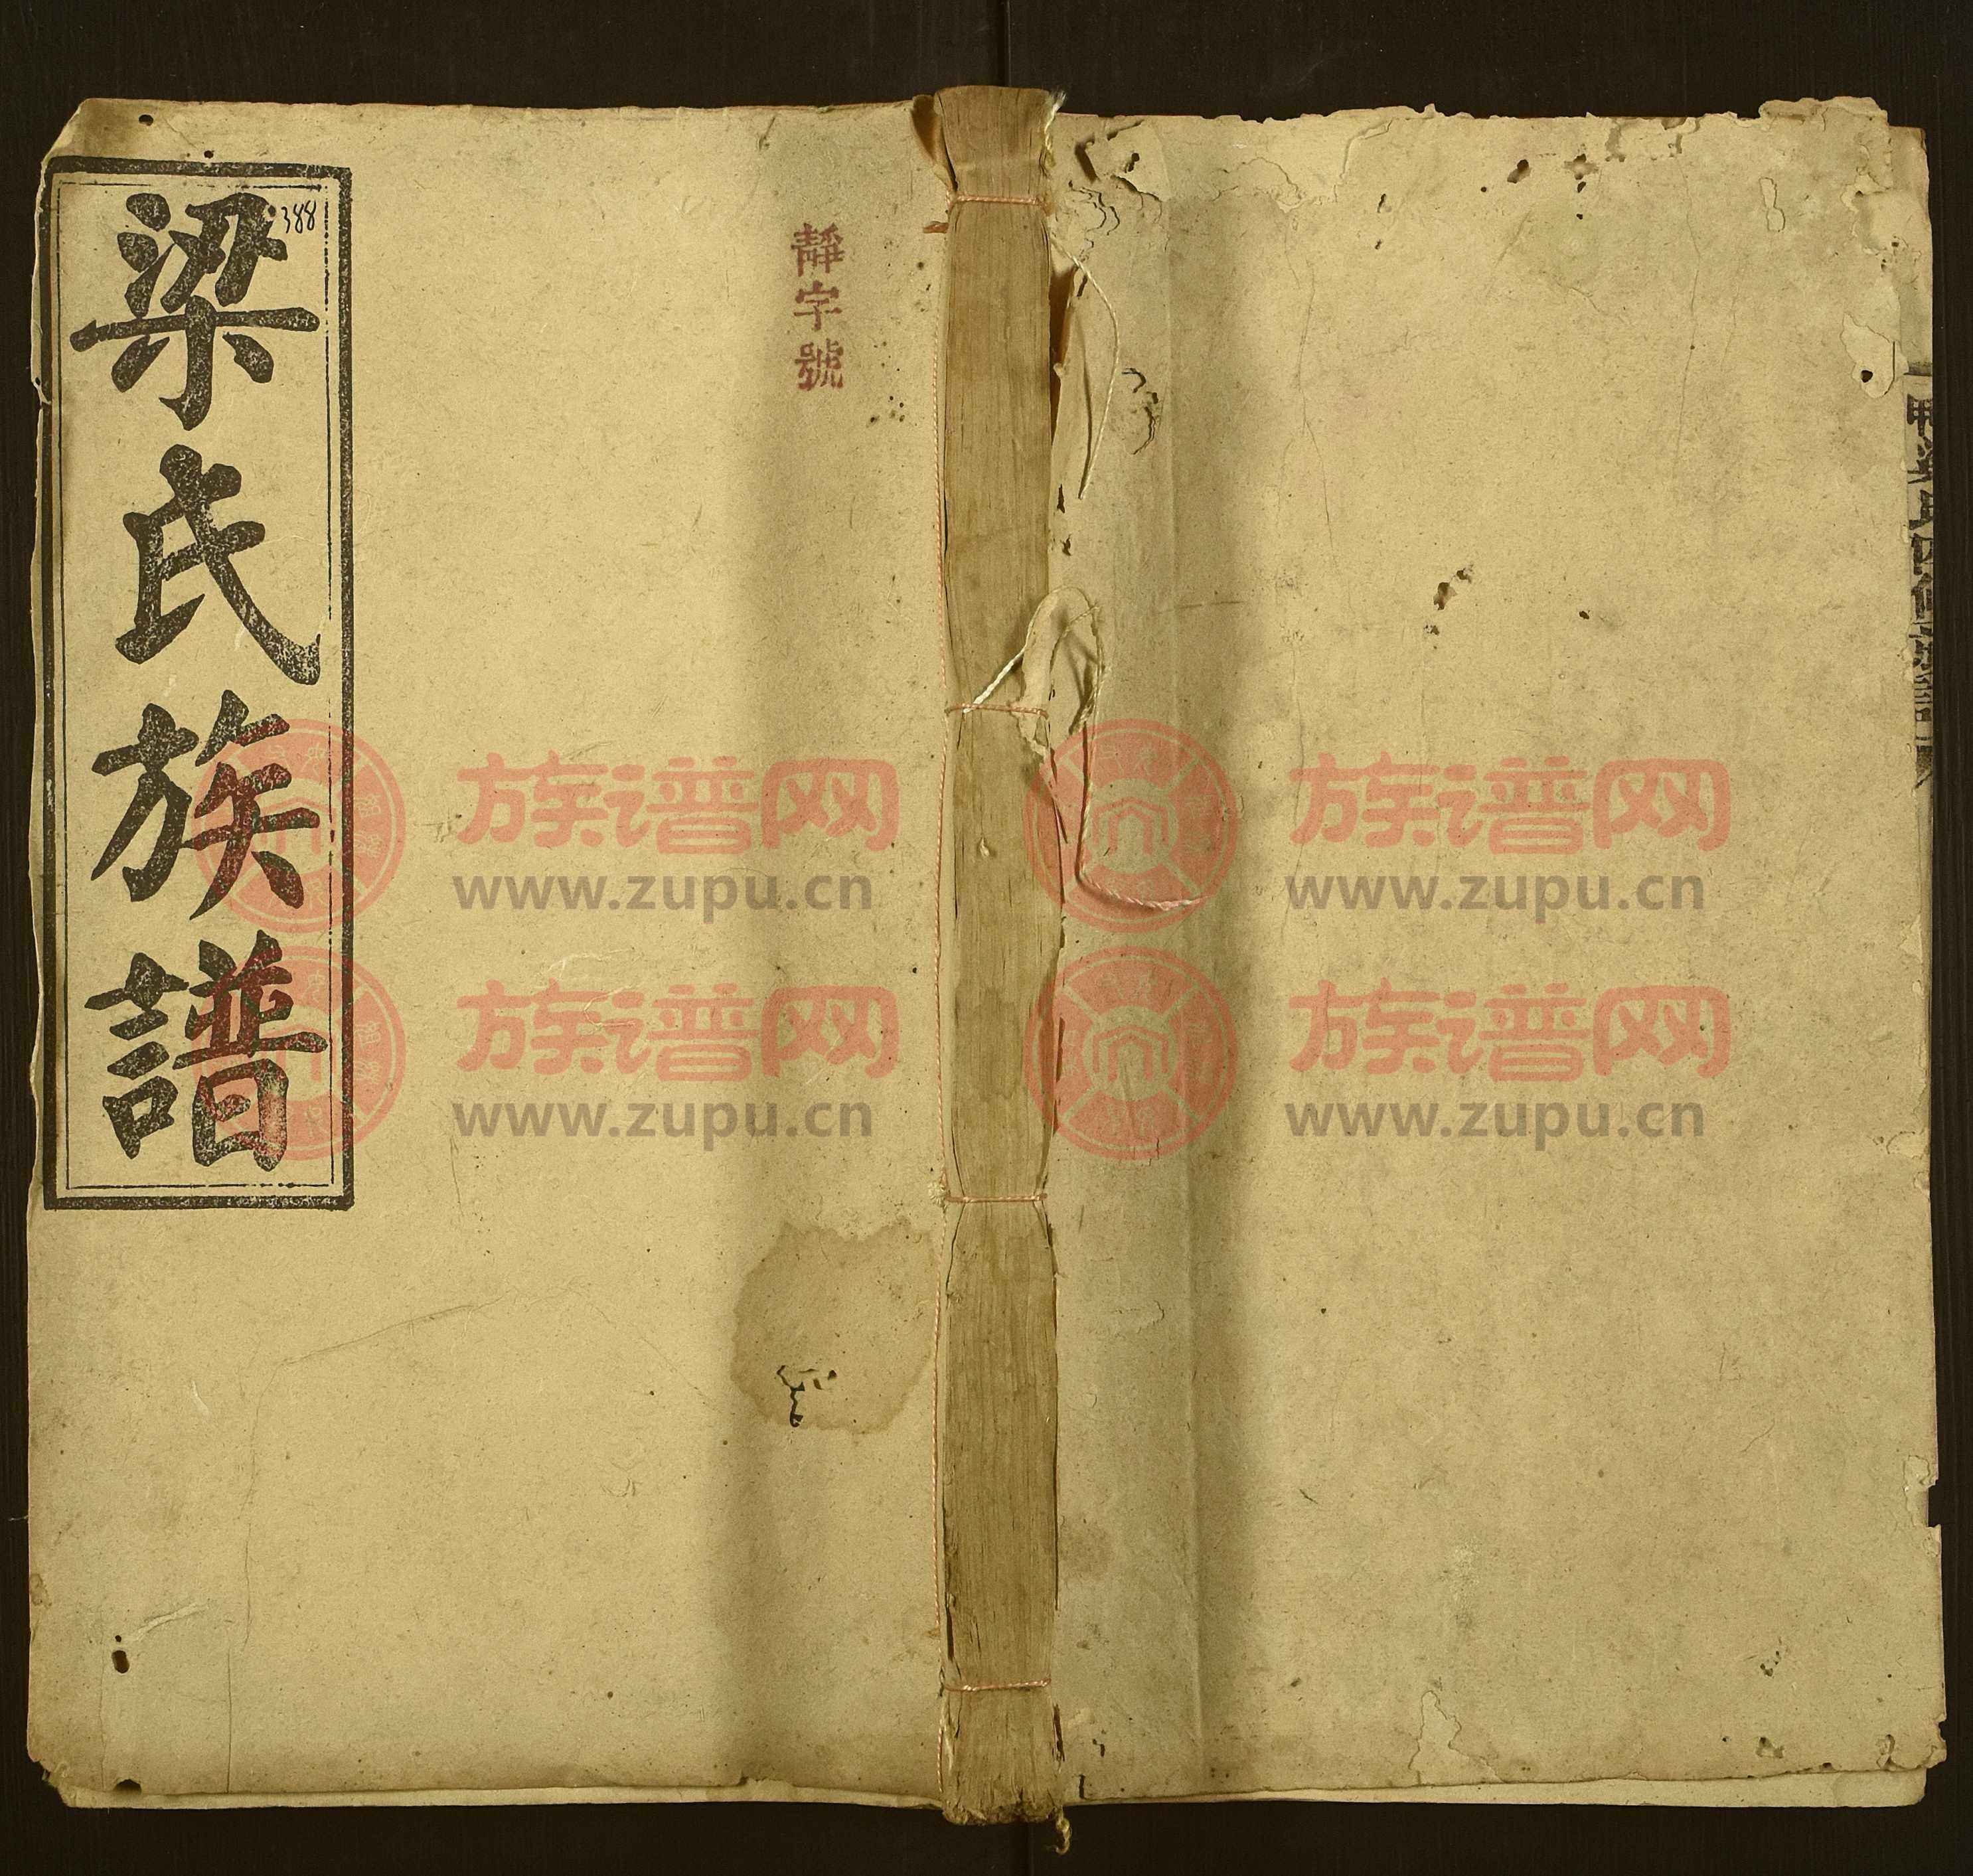 梁氏族譜
388
靜字號
族谱网
www.zupu.cn
族谱网
www.zupu.cn
族谱网
www.zupu.cn
族谱网
www.zupu.cn